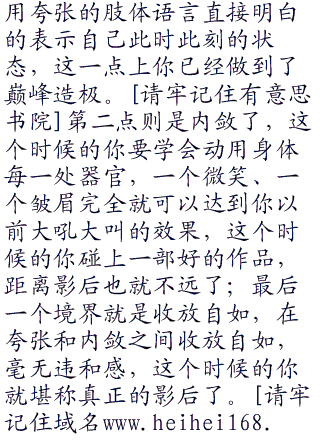 用夸张的肢体语言直接明白
的表示自己此时此刻的状
态，这一点上你已经做到了
巅峰造极。[请牢记住有意思
书院]第二点则是内敛了，这
个时候的你要学会动用身体
每一处器官，一个微笑、一
个皱眉完全就可以达到你以
前大吼大叫的效果，这个时
候的你碰上一部好的作品，
距离影后也就不远了；最后
一个境界就是收放自如，在
夸张和内敛之间收放自如，
毫无违和感，这个时候的你
就堪称真正的影后了。[请牢
记住域名www.heihei168.